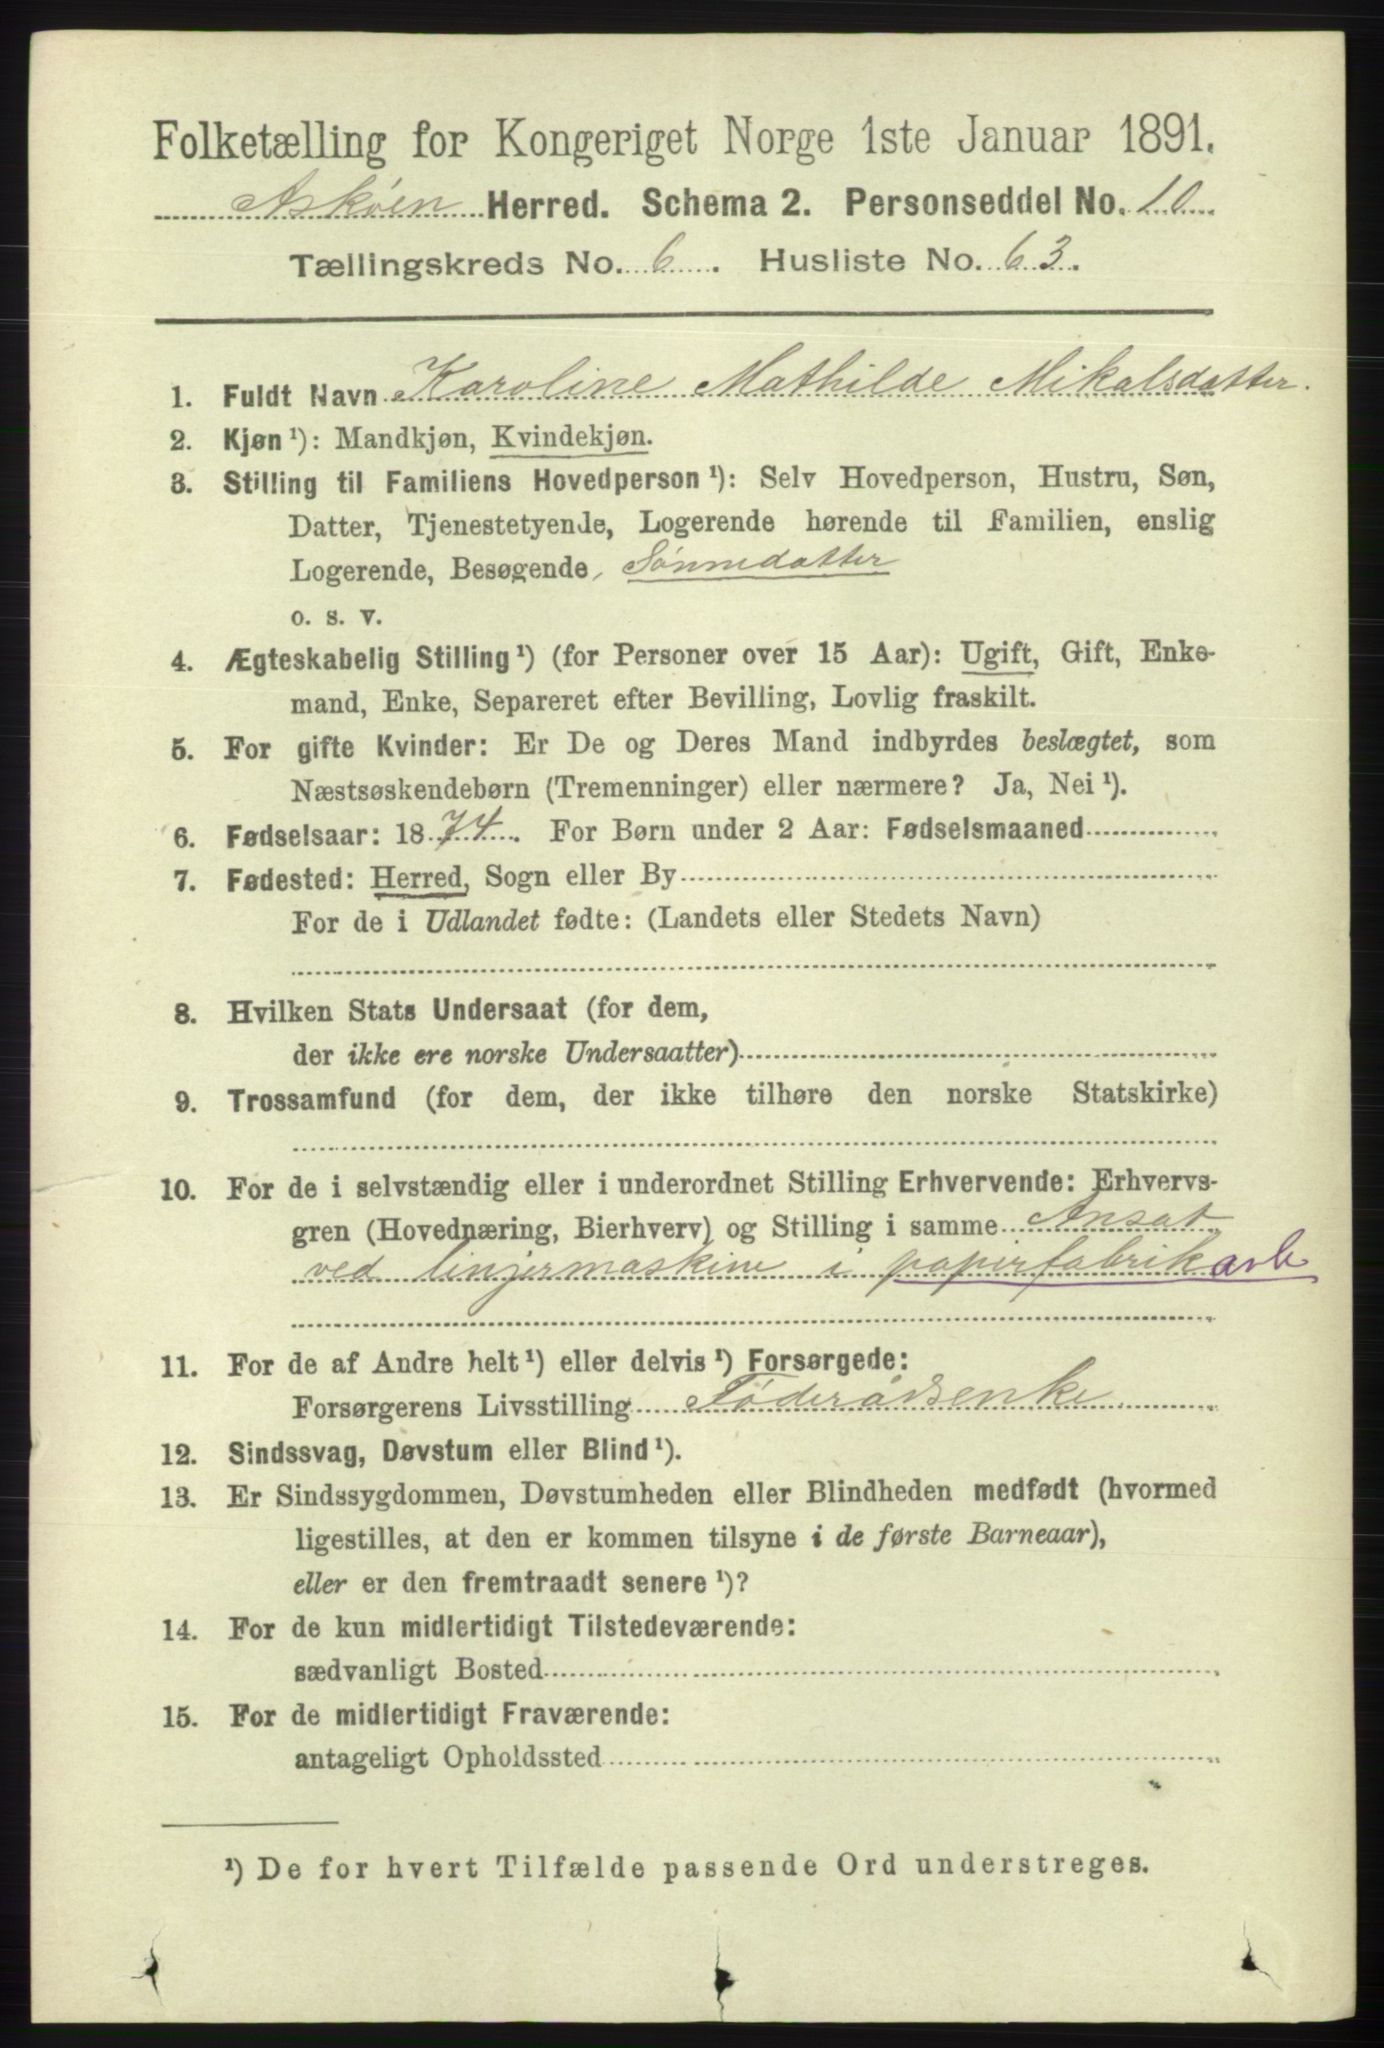 Folketælling for Kongeriget Norge 1ste Januar 1891.
Askøen Herred. Schema 2. Personseddel No. 10
Tællingskreds No. 6. Husliste No. 63.
1. Fuldt Navn Karoline Mathilde Mikalsdatter.
2. Kjøn¹): Mandkjøn, Kvindekjøn.
3. Stilling til Familiens Hovedperson¹): Selv Hovedperson, Hustru, Søn,
Datter, Tjenestetyende, Logerende hørende til Familien, enslig
Logerende, Besøgende, Sønnedatter
o. s. v.
4. Ægteskabelig Stilling¹) (for Personer over 15 Aar): Ugift, Gift, Enke-
mand, Enke, Separeret efter Bevilling, Lovlig fraskilt.
5. For gifte Kvinder: Er De og Deres Mand indbyrdes beslægtet, som
Næstsøskendebørn (Tremenninger) eller nærmere? Ja, Nei¹).
6. Fødselsaar: 1874. For Børn under 2 Aar: Fødselsmaaned
7. Fødested: Herred, Sogn eller By
For de i Udlandet fødte: (Landets eller Stedets Navn)
8. Hvilken Stats Undersaat (for dem,
der ikke ere norske Undersaatter)
9. Trossamfund (for dem, der ikke tilhøre den norske Statskirke)
10. For de i selvstændig eller i underordnet Stilling Erhvervende: Erhvervs-
gren (Hovednæring, Bierhverv) og Stilling i samme Ansat
ved linjermaskine i papirfabrik arb
11. For de af Andre helt¹) eller delvis¹) Forsørgede:
Forsørgerens Livsstilling Føderådsenke
12. Sindssvag, Døvstum eller Blind¹).
13. Er Sindssygdommen, Døvstumheden eller Blindheden medfødt (hvormed
ligestilles, at den er kommen tilsyne i de første Barneaar),
eller er den fremtraadt senere¹)?
14. For de kun midlertidigt Tilstedeværende:
sædvanligt Bosted
15. For de midlertidigt Fraværende:
antageligt Opholdssted
¹) De for hvert Tilfælde passende Ord understreges.